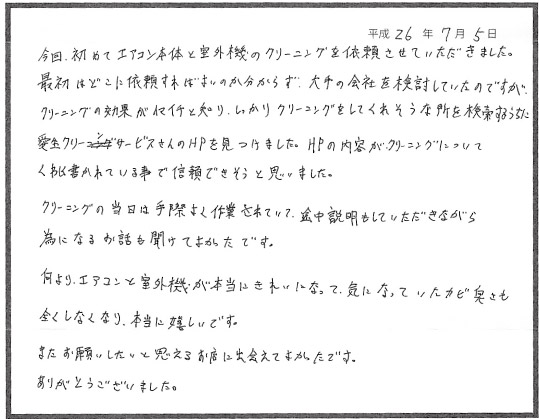 平成 26 年 7月 5日
今回、初めてエアコン本体と室外機のクリーニングを依頼させていただきました。
最初はどこに依頼すればよいのか分からず、大手の会社を検討していたのですが、
クリーニングの効果がイマイチと知り、しっかりクリーニングをしてくれそうな所を検索するうちに
愛生クリーニングサービスさんのHPを見つけました。HPの内容がクリーニングについて
く書かれている事で信頼できそうと思いました。
クリーニングの当日は手際よく作業されていて、途中説明もしていただきながら
為になるお話も聞けてよかったです。
何より、エアコンと室外機が本当にきれいになって、気になっていたカビ臭さも
全くしなくなり、本当に嬉しいです。
またお願いしたいと思えるお店に出会えてよかったです。
ありがとうございました。